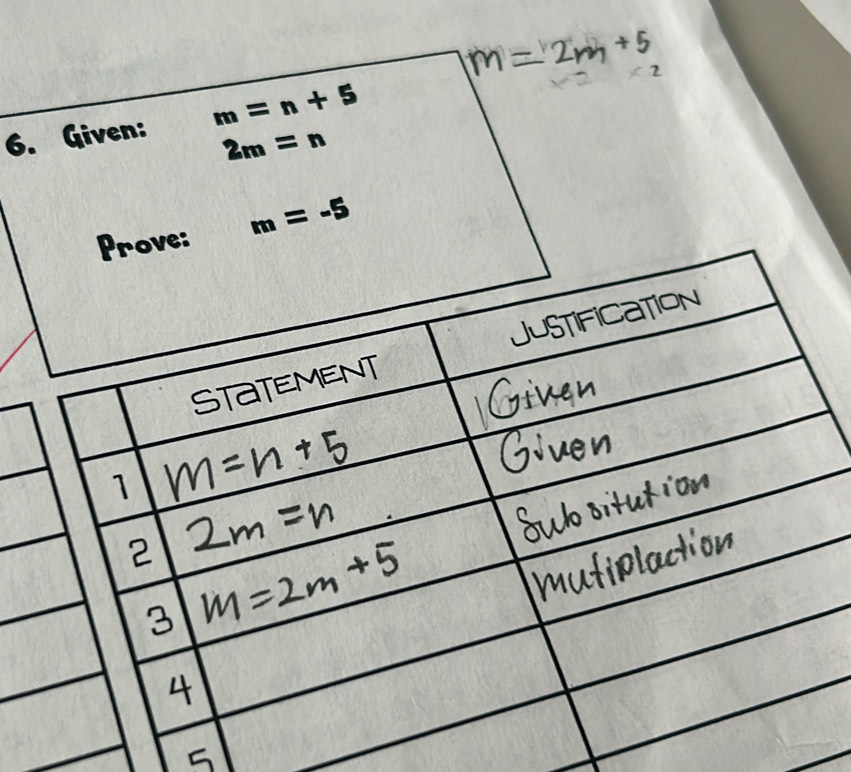 m = 2m + 5
× 2
6. Given: m = n + 5
2m = n
Prove: m = -5
STATEMENT JUSTIFICATION
1 m = n + 5 Given
2 2m = n Given
3 m = 2m + 5 Subsitution
4 mutiplaction
5